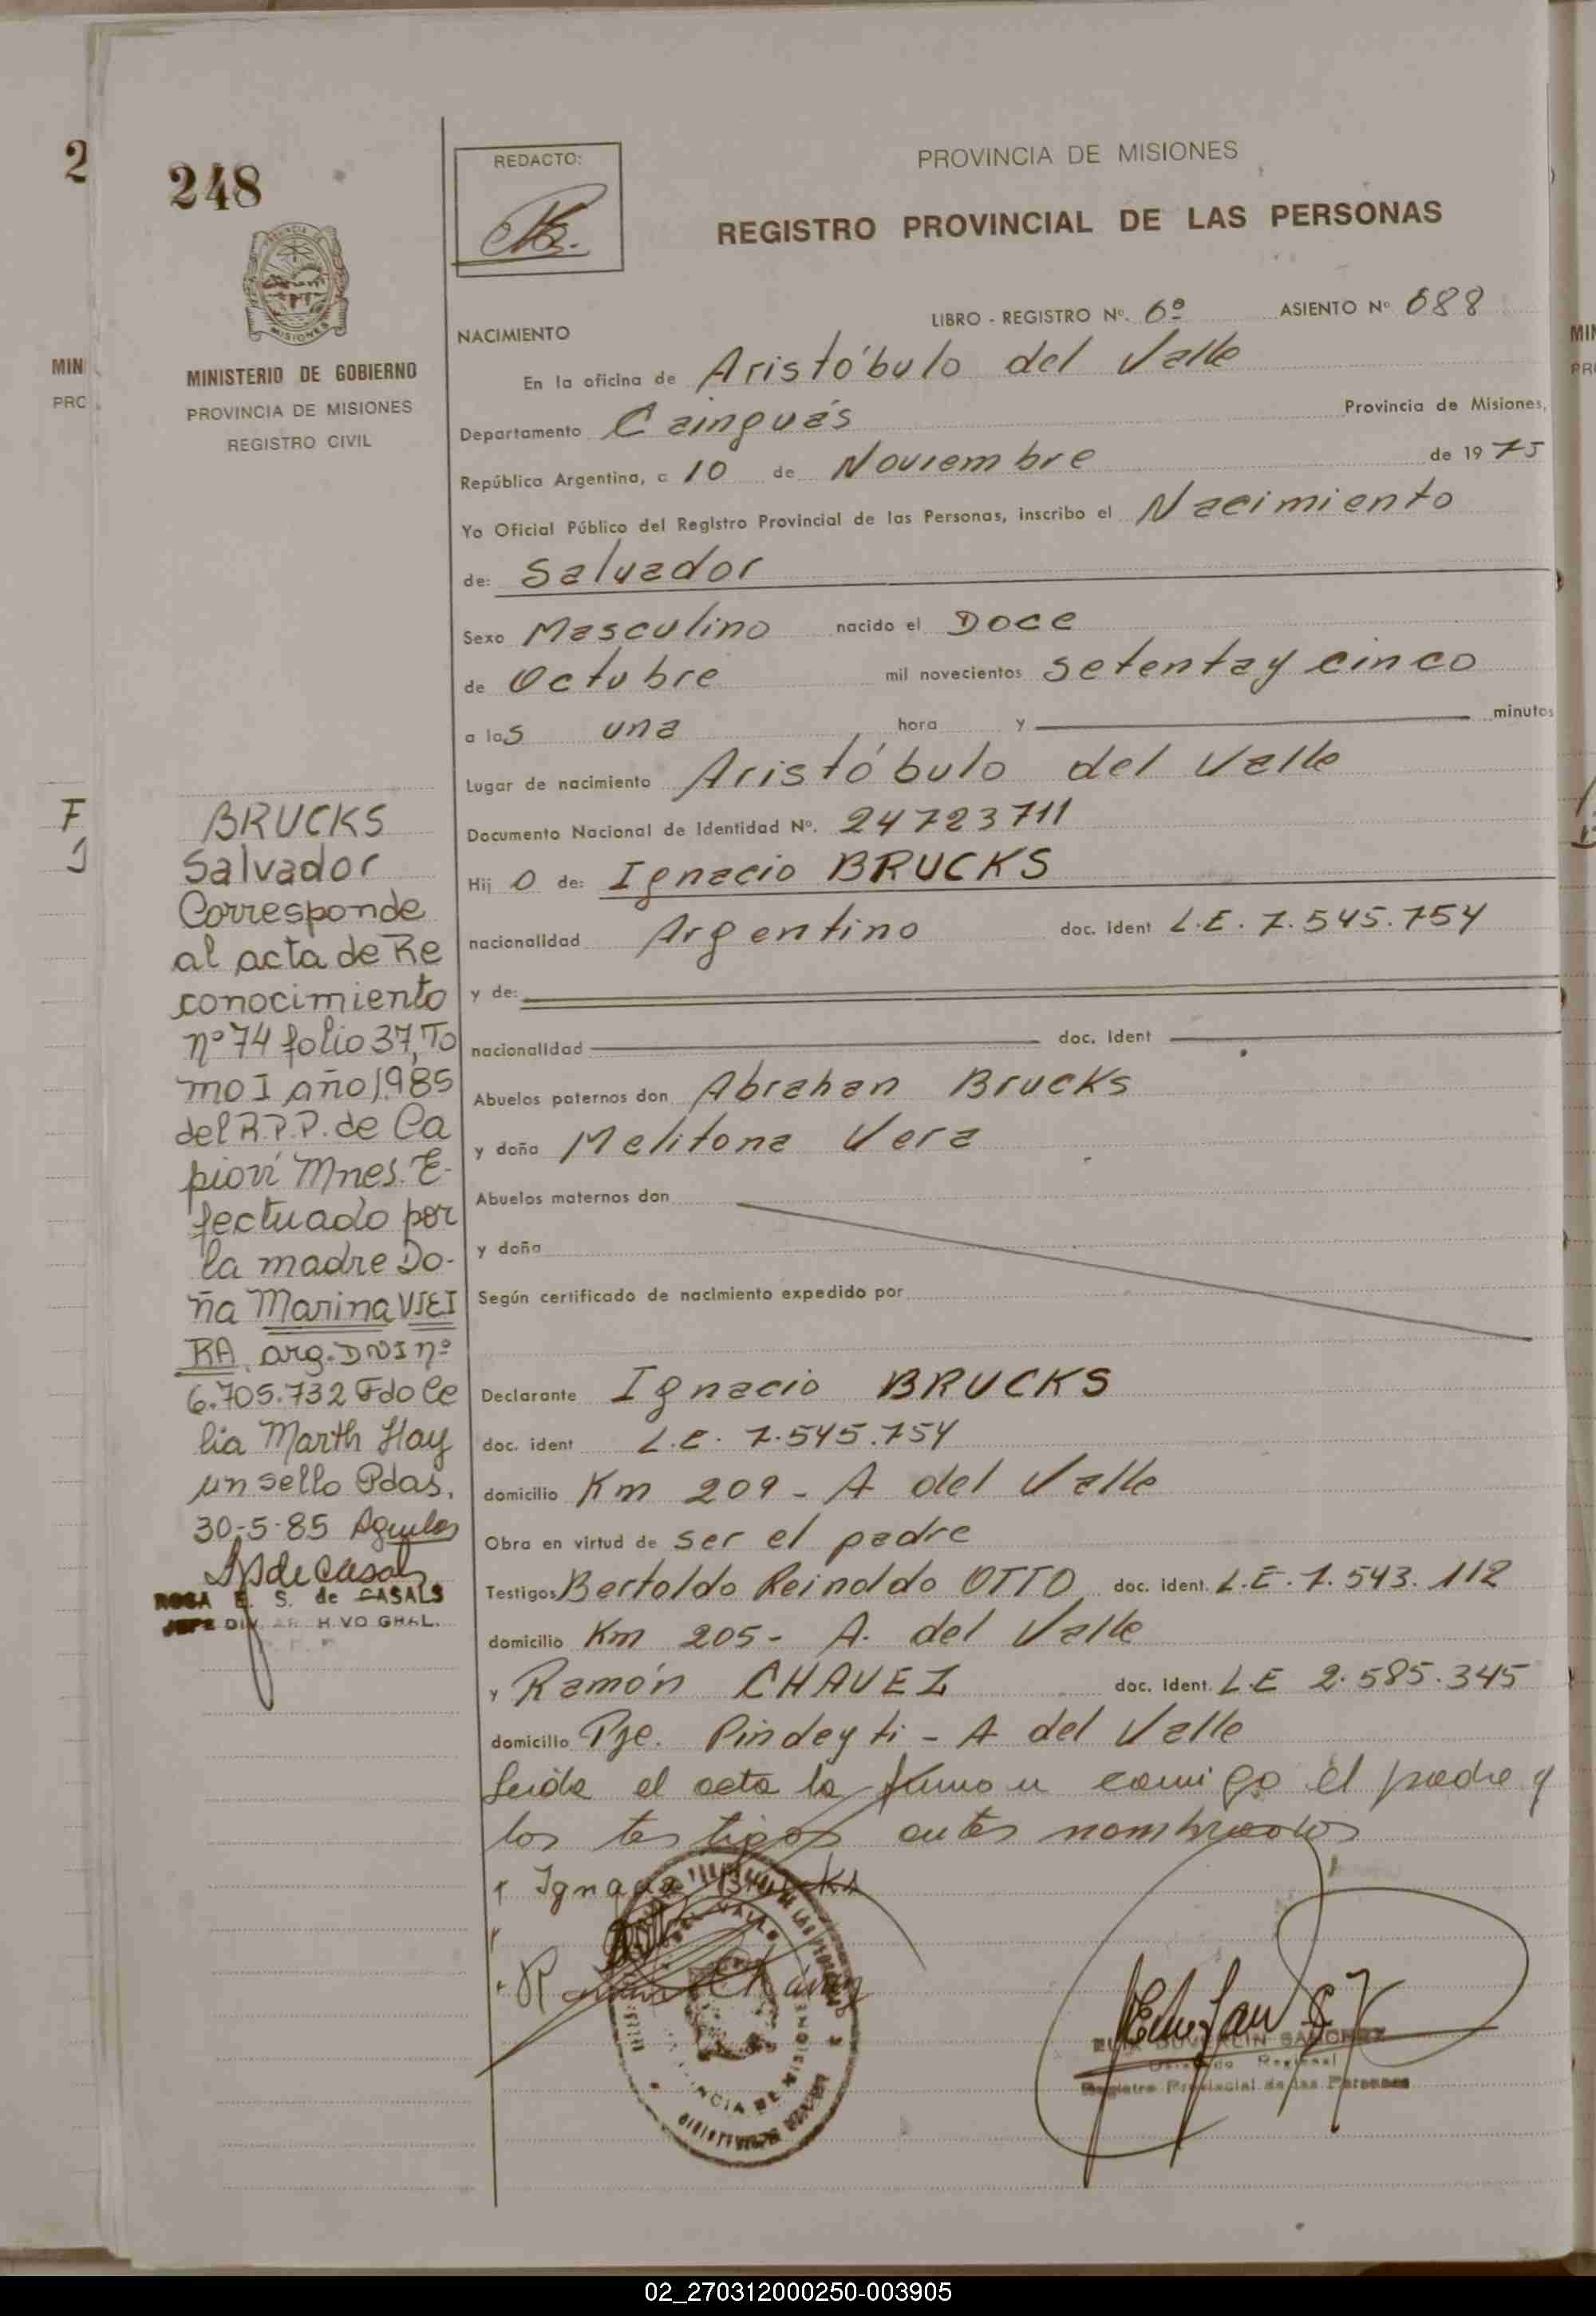 248
MINISTERIO DE GOBIERNO
PROVINCIA DE MISIONES
REGISTRO CIVIL
REDACTO:
PROVINCIA DE MISIONES
REGISTRO PROVINCIAL DE LAS PERSONAS
LIBRO - REGISTRO Nº. 6º ASIENTO Nº 688
NACIMIENTO
En la oficina de Aristóbulo del Valle
Departamento Cainguás Provincia de Misiones,
República Argentina, a 10 de Noviembre de 1975
Yo Oficial Público del Registro Provincial de las Personas, inscribo el Nacimiento
de: Salvador
Sexo Masculino nacido el Doce
de Octubre mil novecientos setenta y cinco
a las una hora y minutos
Lugar de nacimiento Aristóbulo del Valle
Documento Nacional de Identidad Nº. 24723711
Hijo de: Ignacio BRUCKS
nacionalidad Argentino doc. ident L.E. 7.545.754
y de:
nacionalidad doc. ident
Abuelos paternos don Abrahan Brucks
y doña Melitona Vera
Abuelos maternos don
y doña
Según certificado de nacimiento expedido por
Declarante Ignacio BRUCKS
doc. ident L.E. 7.545.754
domicilio Km 209 - A del Valle
Obra en virtud de ser el padre
Testigos Bertoldo Reinoldo OTTO doc. ident. L.E. 7.543.112
domicilio Km 205 - A. del Valle
y Ramón CHAVEZ doc. ident. L.E 2.585.345
domicilio Pje. Pindeyti - A del Valle
Leída el acta la firman conmigo el padre y
los testigos antes nombrados
Ignacio Brucks
Chávez
Registro Provincial de las Personas
BRUCKS
Salvador
Corresponde
al acta de Re
conocimiento
nº 74 folio 37, To
mo I año 1.985
del R.P.P. de Ca
pioví Mnes. E-
fectuado por
la madre Do-
ña Marina VIEI
RA, arg. DNI nº
6.705.732 Fdo Ce
lia Marth Hay
un sello Pdas.
30-5-85
ROSA E. S. de CASALS
JEFE DIV. ARCHIVO GRAL.
02_270312000250-003905